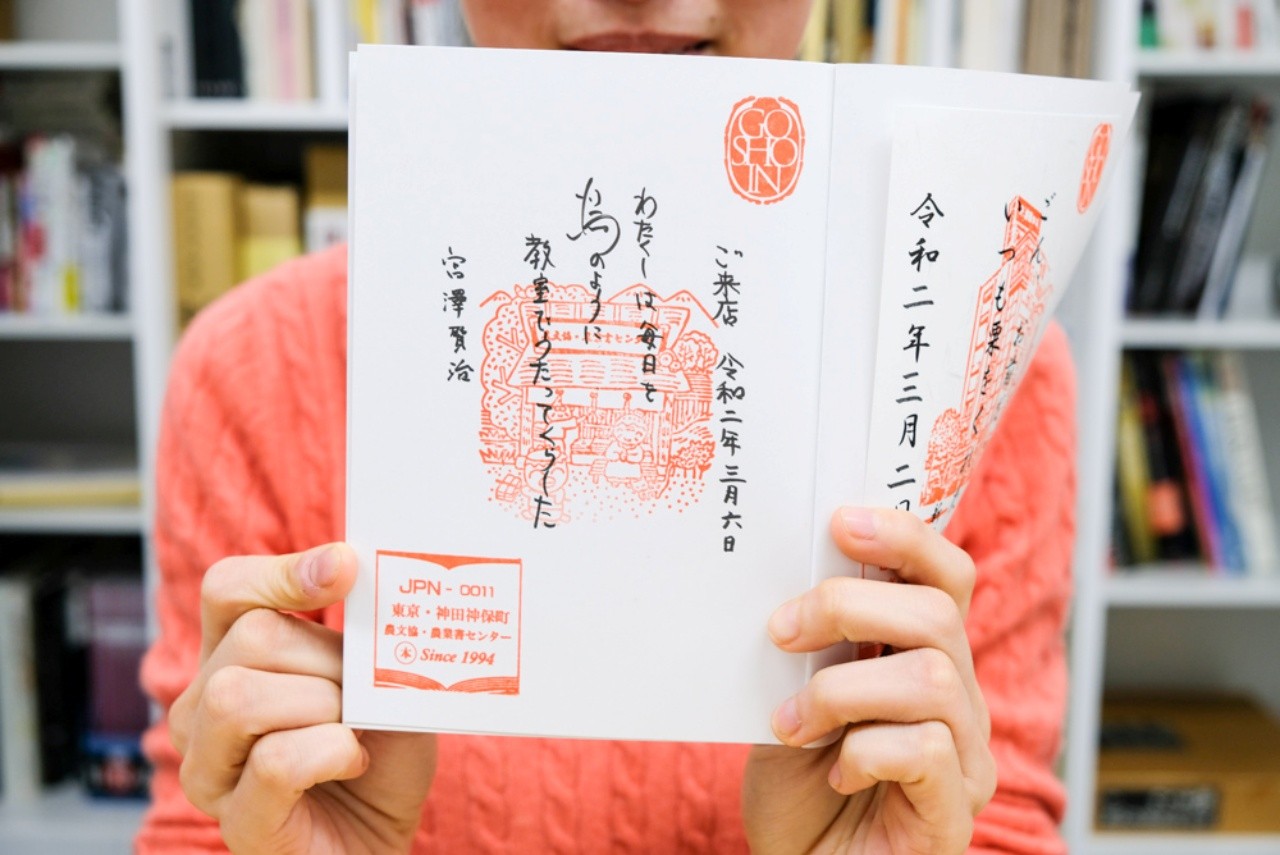 GO
SHO
IN
ご来店 令和二年三月六日
わたくしは毎日を
鳥のように
教室でうたってくらした
宮澤賢治
JPN - 0011
東京・神田神保町
農文協・農業書センター
本 Since 1994
いつも栗を
令和二年三月二